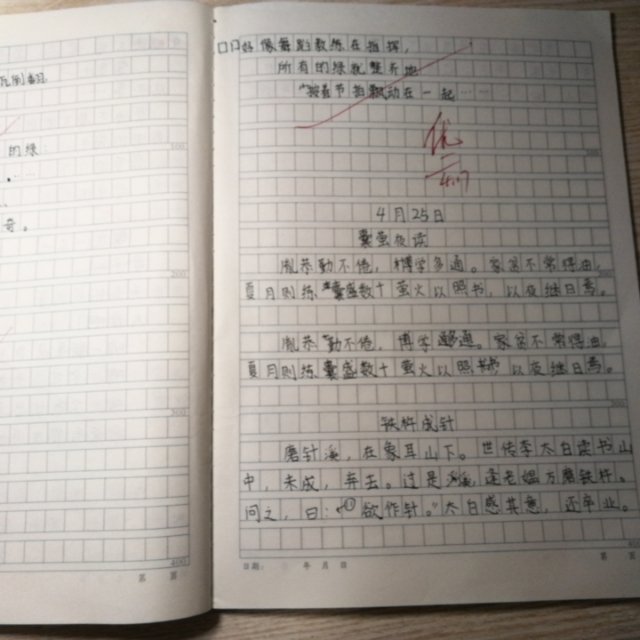 的绿
奇。
好像舞蹈教练在指挥，
所有的绿就整齐地
按着节拍飘动在一起……
优
4.27
4月25日
囊萤夜读
胤恭勤不倦，博学多通。家贫不常得油，
夏月则练囊盛数十萤火以照书，以夜继日焉。
胤恭勤不倦，博学多通。家贫不常得油，
夏月则练囊盛数十萤火以照书，以夜继日焉。
铁杵成针
磨针溪，在象耳山下。世传李太白读书山
中，未成，弃去。过是溪，逢老媪方磨铁杵。
问之，曰：“欲作针。”太白感其意，还卒业。
日期： 年 月 日
第 页